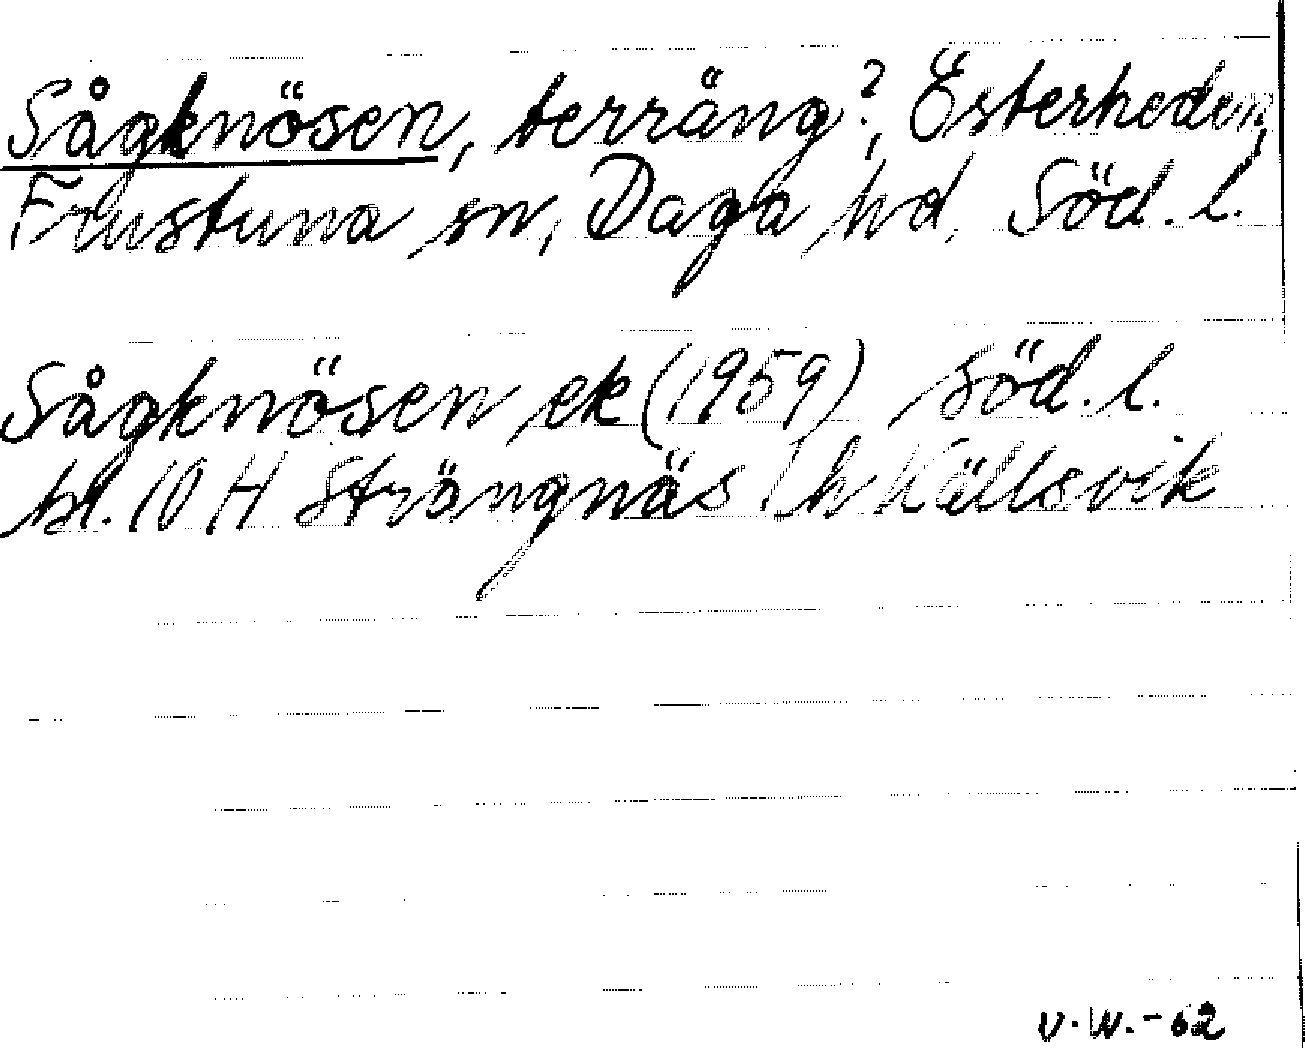 Sågknösen, terräng?, Österheden,
Frustuna sn, Daga hd, Söd. l.
Sågknösen ek (1959) Söd. l.
bl. 10 H Strängnäs h Källsvik
V.W.-62